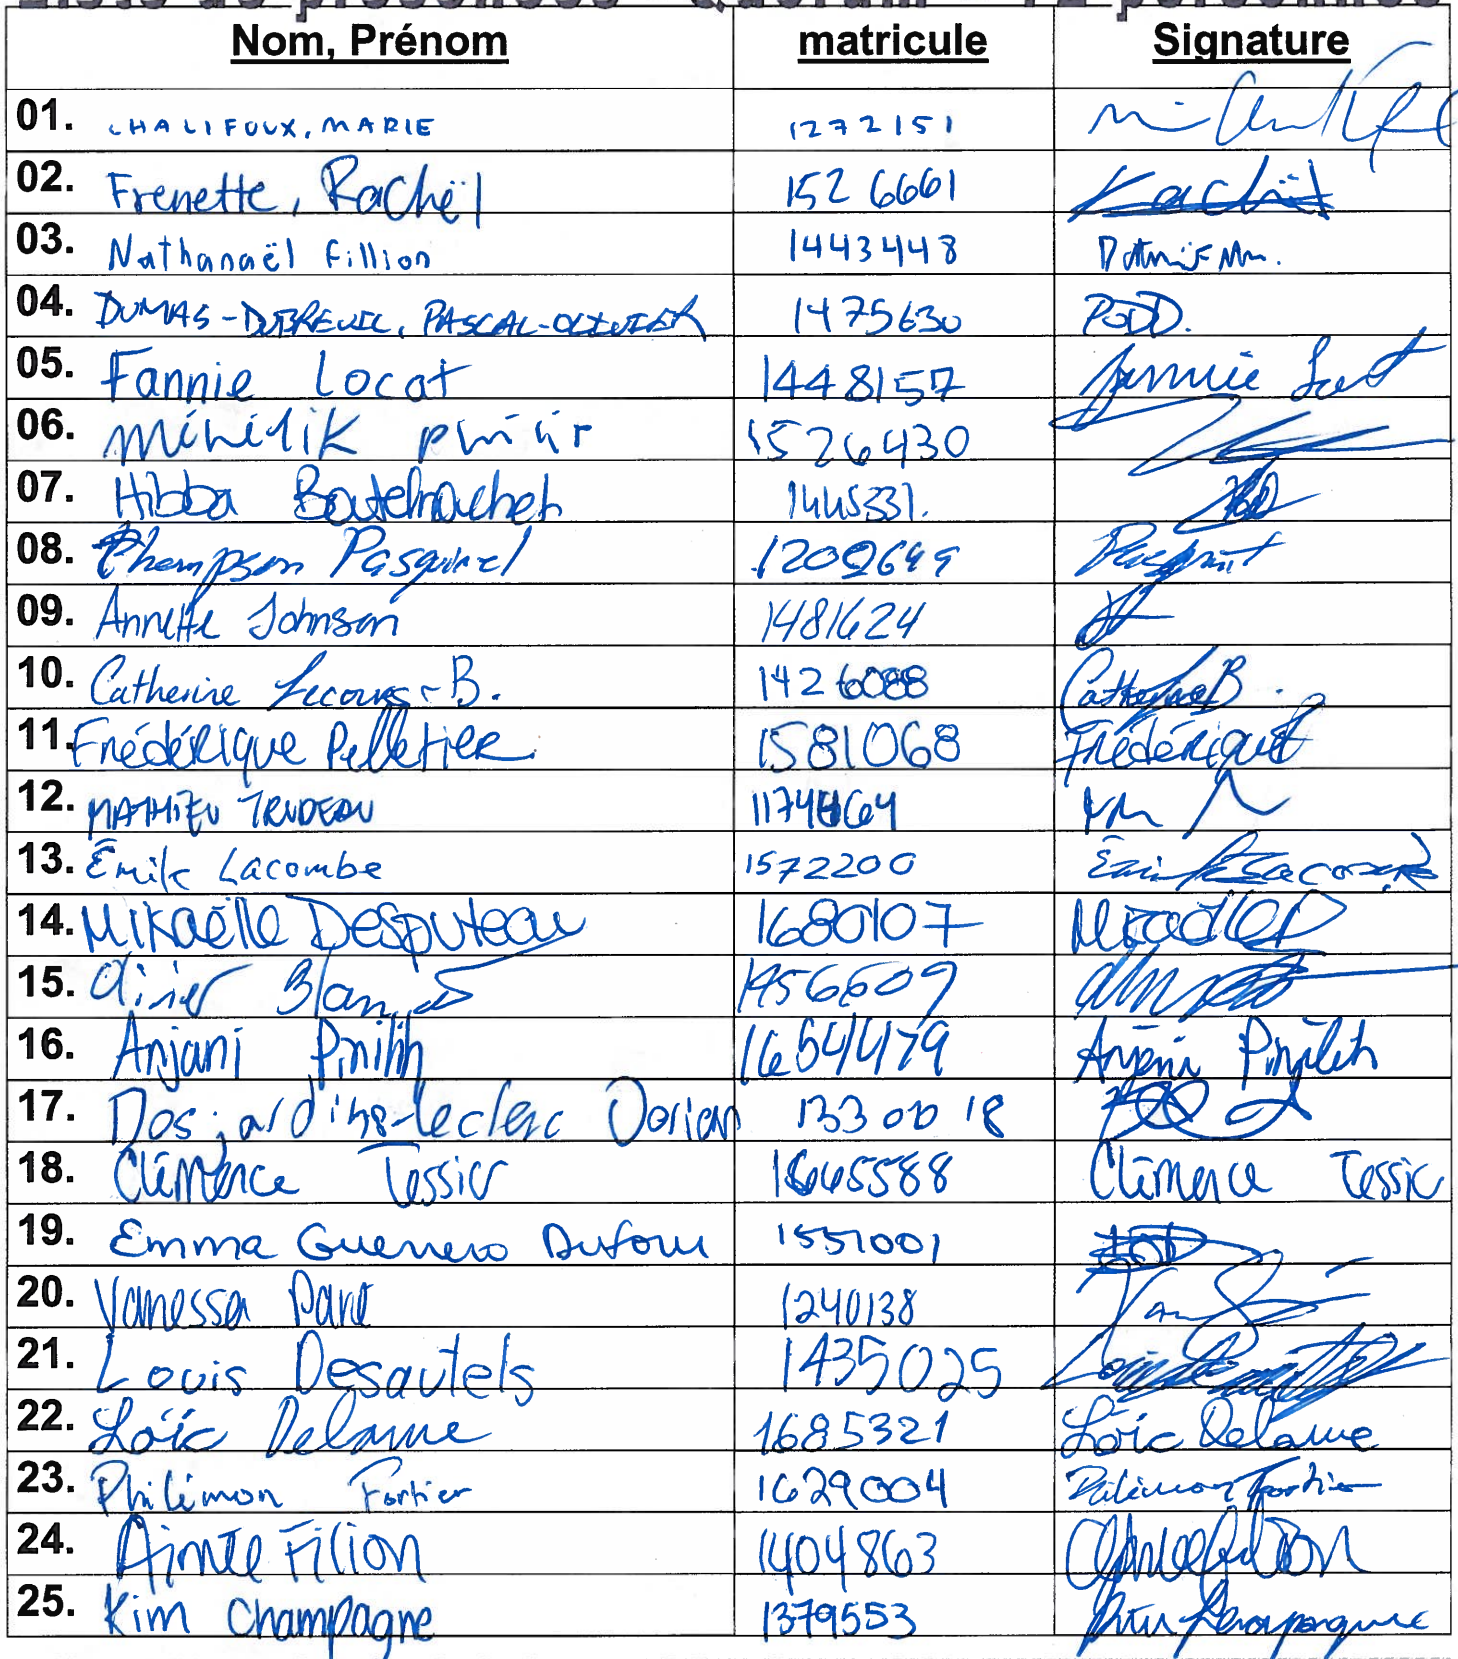 Liste de présences Quorum 72 personnes
Nom, Prénom matricule Signature
01. CHALIFOUX, MARIE 1272151
02. Frenette, Rachël 1526661 Rachël
03. Nathanaël Fillion 1443448
04. DUMAS-DUBREUIL, PASCAL-OLIVIER 1475630 PODD.
05. Fannie Locat 1448157 Fannie Locat
06. 1526430
07. Hibba 1445331.
08. Thompson Pasquinel
09. Annette Johnson 1481624
10. Catherine Lecours-B. 1426088 Catherine B.
11. Frédérique Pelletier 1581068 Frédérique
12. MATHIEU TRUDEAU
13. Émile Lacombe 1572200 Émile Lacombe
14. Mikaëlle Desputeau 1680107
15. Olivier 1456609
16. Anjani 1654479 Anjani
17. Desjardins-Leclerc Dorian 1330018
18. Clémence Tessier 1645588 Clémence Tessier
19. Emma Guerrero Dufour 1551001
20. Vanessa Paré 1240138
21. Louis Desautels 1435025
22. Loïc Delarue 1685321 Loïc Delarue
23. Philémon Fortier 1629004 Philémon Fortier
24. Aimée Filion 1404863
25. Kim Champagne 1379553 Kim Champagne